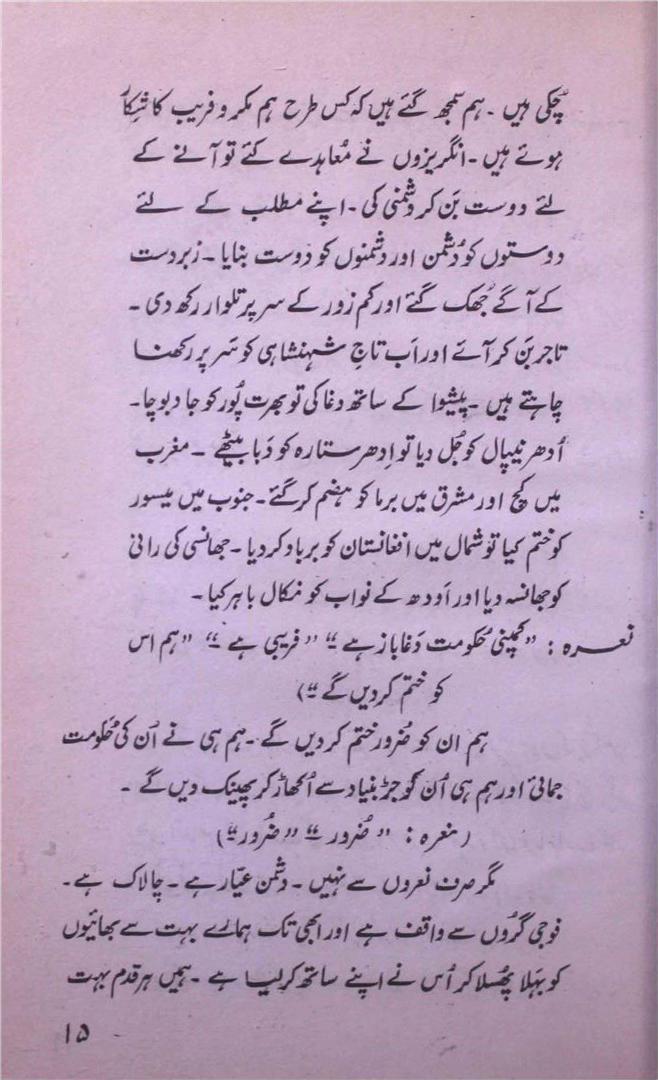 چکی ہیں ۔ ہم سمجھ گئے ہیں کہ کس طرح ہم مکر و فریب کا شکار
ہوئے ہیں ۔ انگریزوں نے مُعاہدے کئے تو آلنے کے
لئے دوست بَن کر دشمنی کی ۔ اپنے مطلب کے لئے
دوستوں کو دُشمن اور دشمنوں کو دَوست بنایا ۔ زبردست
کے آگے جُھک گئے اور کم زور کے سر پر تلوار رکھ دی ۔
تاجر بَن کر آئے اور اَب تاجِ شہنشاہی کو سَر پر رکھنا
چاہتے ہیں ۔ پیشوا کے ساتھ دغا کی تو بھرت پُور کو جا دبوچا ۔
اُدھر نیپال کو جُل دیا تو اِدھر ستارہ کو دَبا بیٹھے ۔ مغرب
میں کچ اور مشرق میں برما کو ہضم کر گئے ۔ جنوب میں میسور
کو ختم کیا تو شمال میں افغانستان کو برباد کر دیا ۔ جھانسی کی رانی
کو جھانسہ دیا اور اَودھ کے نواب کو نکال باہر کیا ۔
نعرہ : ”کمپنی حُکومت دَغاباز ہے ۔“ ”فریبی ہے ۔“ ”ہم اس
کو ختم کر دیں گے ۔“)
ہم ان کو ضُرور ختم کر دیں گے ۔ ہم ہی نے اُن کی حُکومت
جمائی اور ہم ہی اُن کو جڑ بنیاد سے اُکھاڑ کر پھینک دیں گے ۔
(نعرہ : ”ضُرور ۔“ ”ضُرور ۔“)
مگر صرف نعروں سے نہیں ۔ دشمن عیّار ہے ۔ چالاک ہے ۔
فوجی گُروں سے واقف ہے اور ابھی تک ہمارے بہت سے بھائیوں
کو بہلا پُھسلا کر اُس نے اپنے ساتھ کر لیا ہے ۔ ہمیں ہر قدم بہت
۱۵